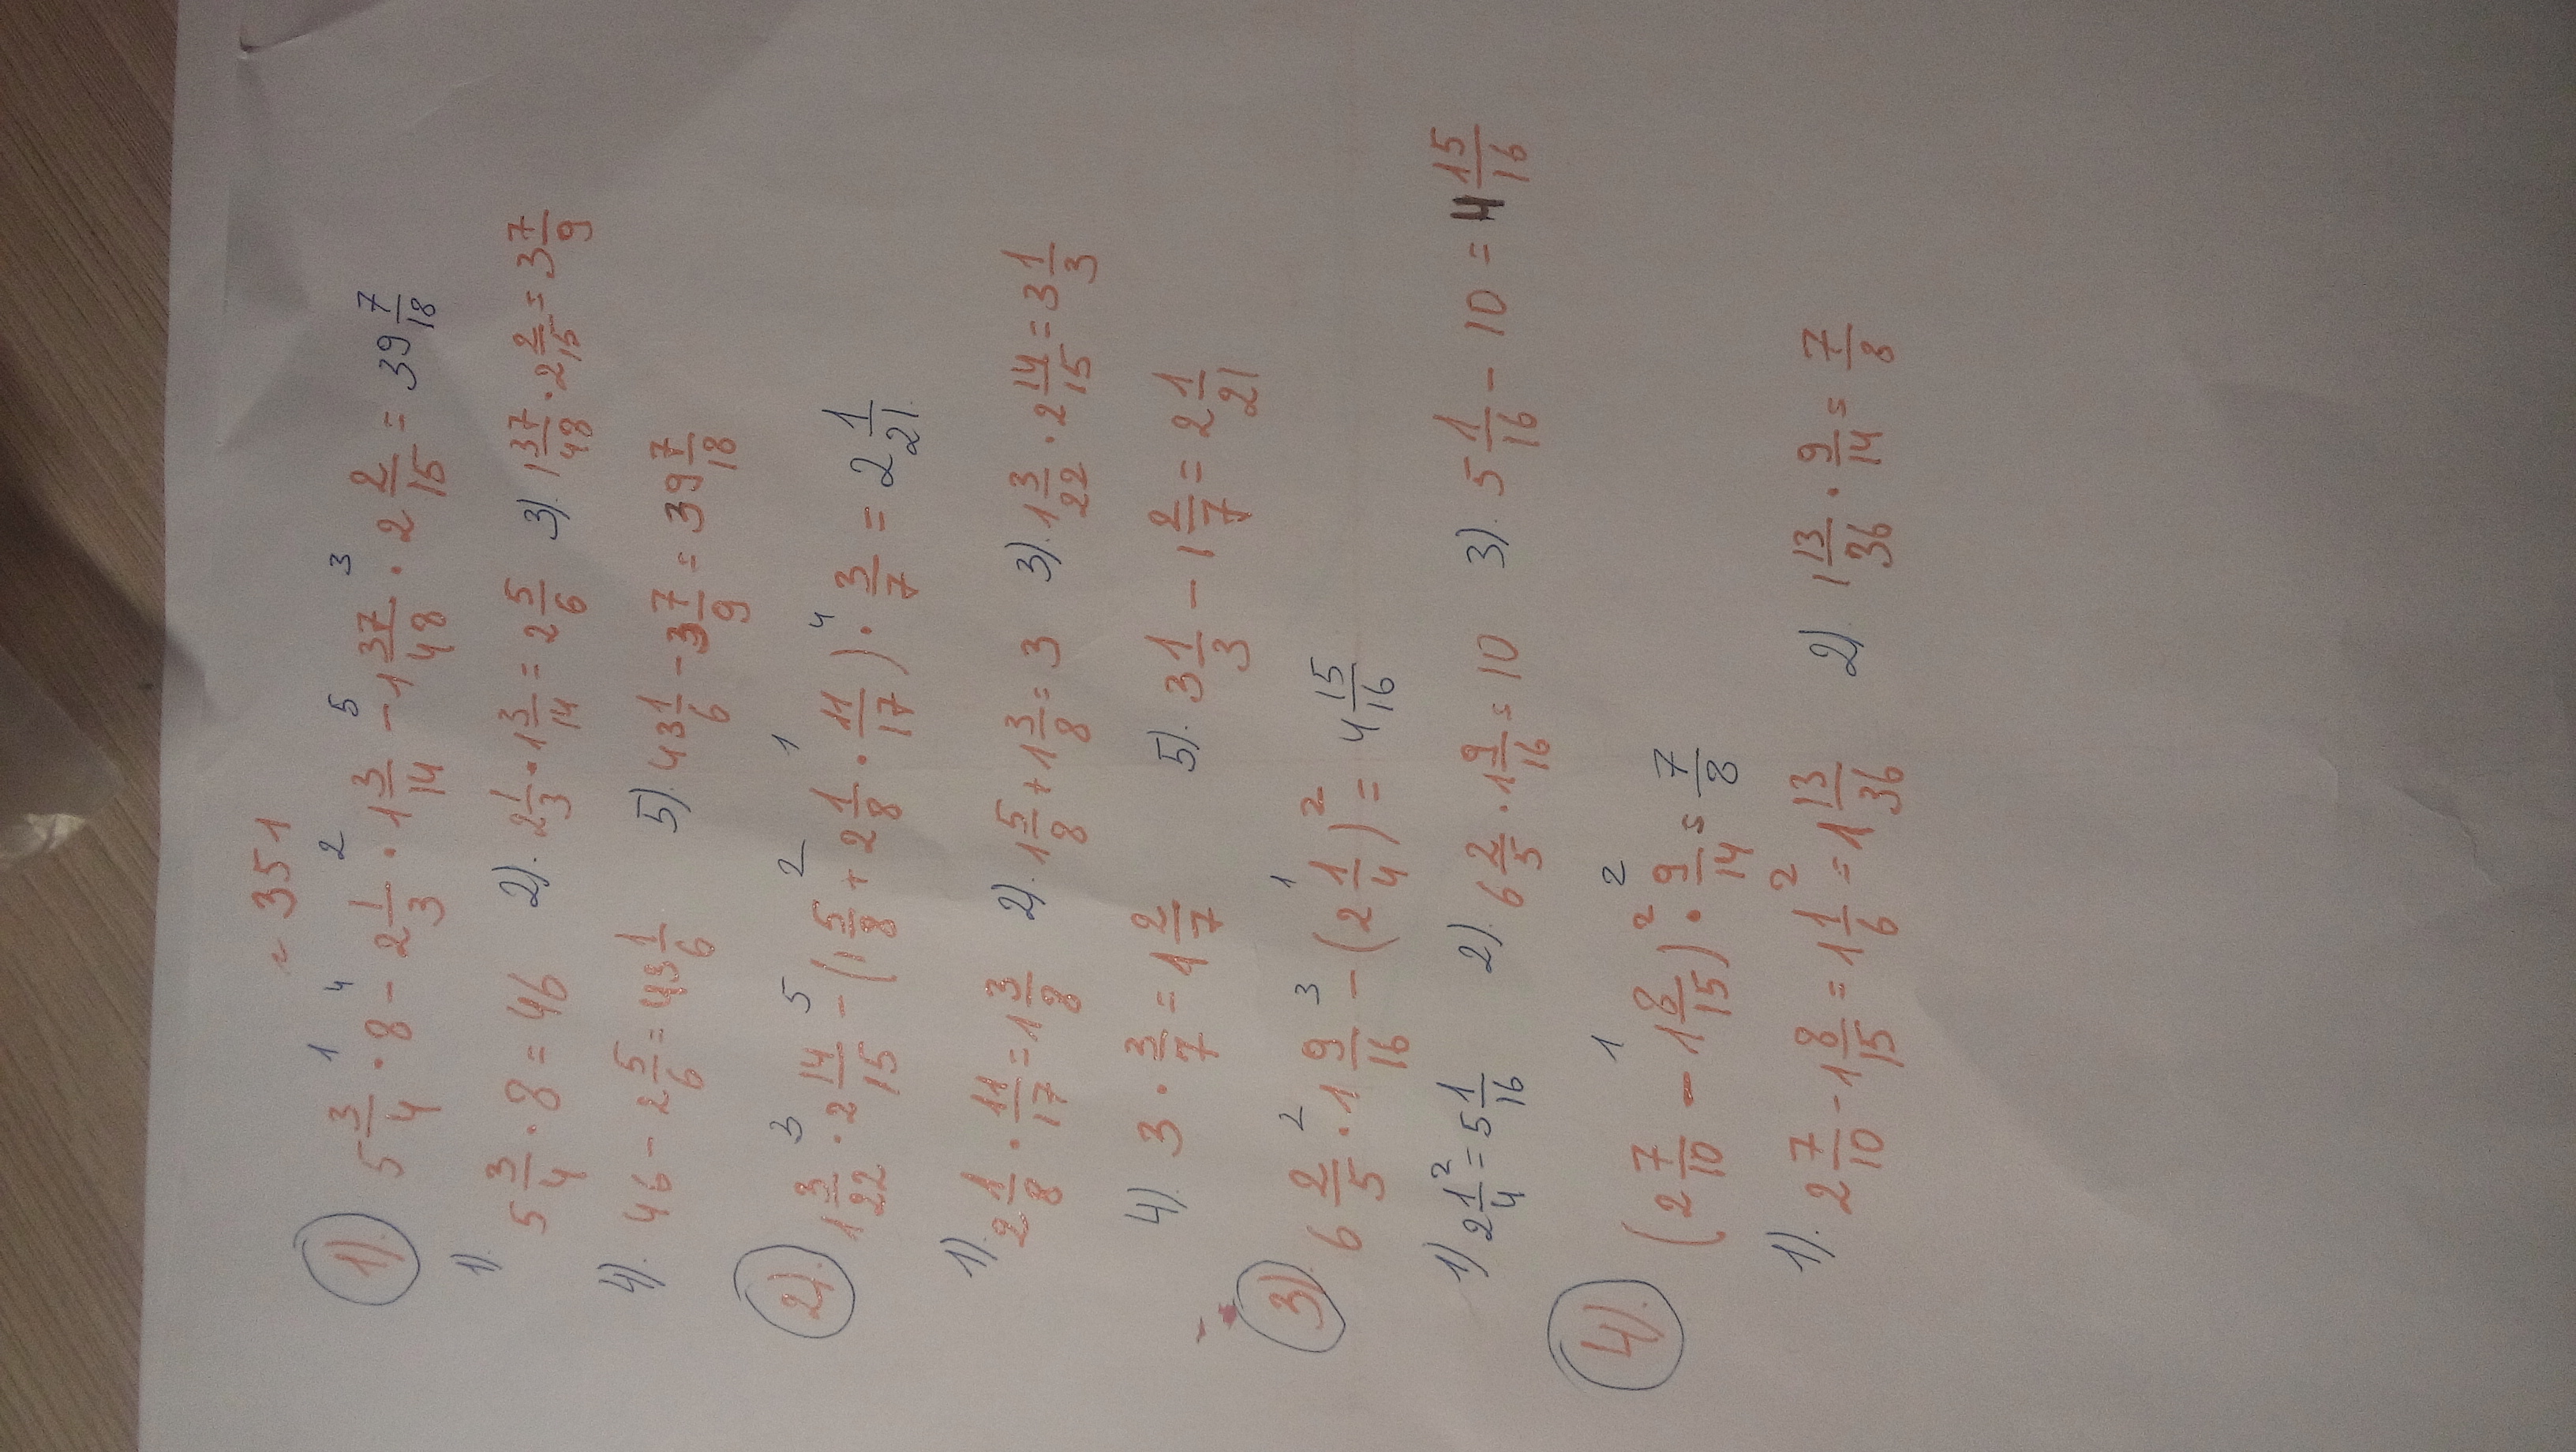 № 351
1). 5 3/4 · 8 - 2 1/3 · 1 3/14 - 1 37/48 · 2 2/15 = 39 7/18
1) 5 3/4 · 8 = 46 2). 2 1/3 · 1 3/14 = 2 5/6 3). 1 37/48 · 2 2/15 = 3 7/9
4). 46 - 2 5/6 = 43 1/6 5). 43 1/6 - 3 7/9 = 39 7/18
2). 1 3/22 · 2 14/15 - (1 5/8 + 2 1/8 · 11/17) · 3/7 = 2 1/21
1). 2 1/8 · 11/17 = 1 3/8 2). 1 5/8 + 1 3/8 = 3 3). 1 3/22 · 2 14/15 = 3 1/3
4). 3 · 3/7 = 1 2/7 5). 3 1/3 - 1 2/7 = 2 1/21
3). 6 2/5 · 1 9/16 - (2 1/4)² = 4 15/16
1) 2 1/4² = 5 1/16 2). 6 2/5 · 1 9/16 = 10 3). 5 1/16 - 10 = 4 15/16
4). (2 7/10 - 1 8/15)² · 9/14 = 7/8
1). 2 7/10 - 1 8/15 = 1 1/6² = 1 13/36 2) 1 13/36 · 9/14 = 7/8